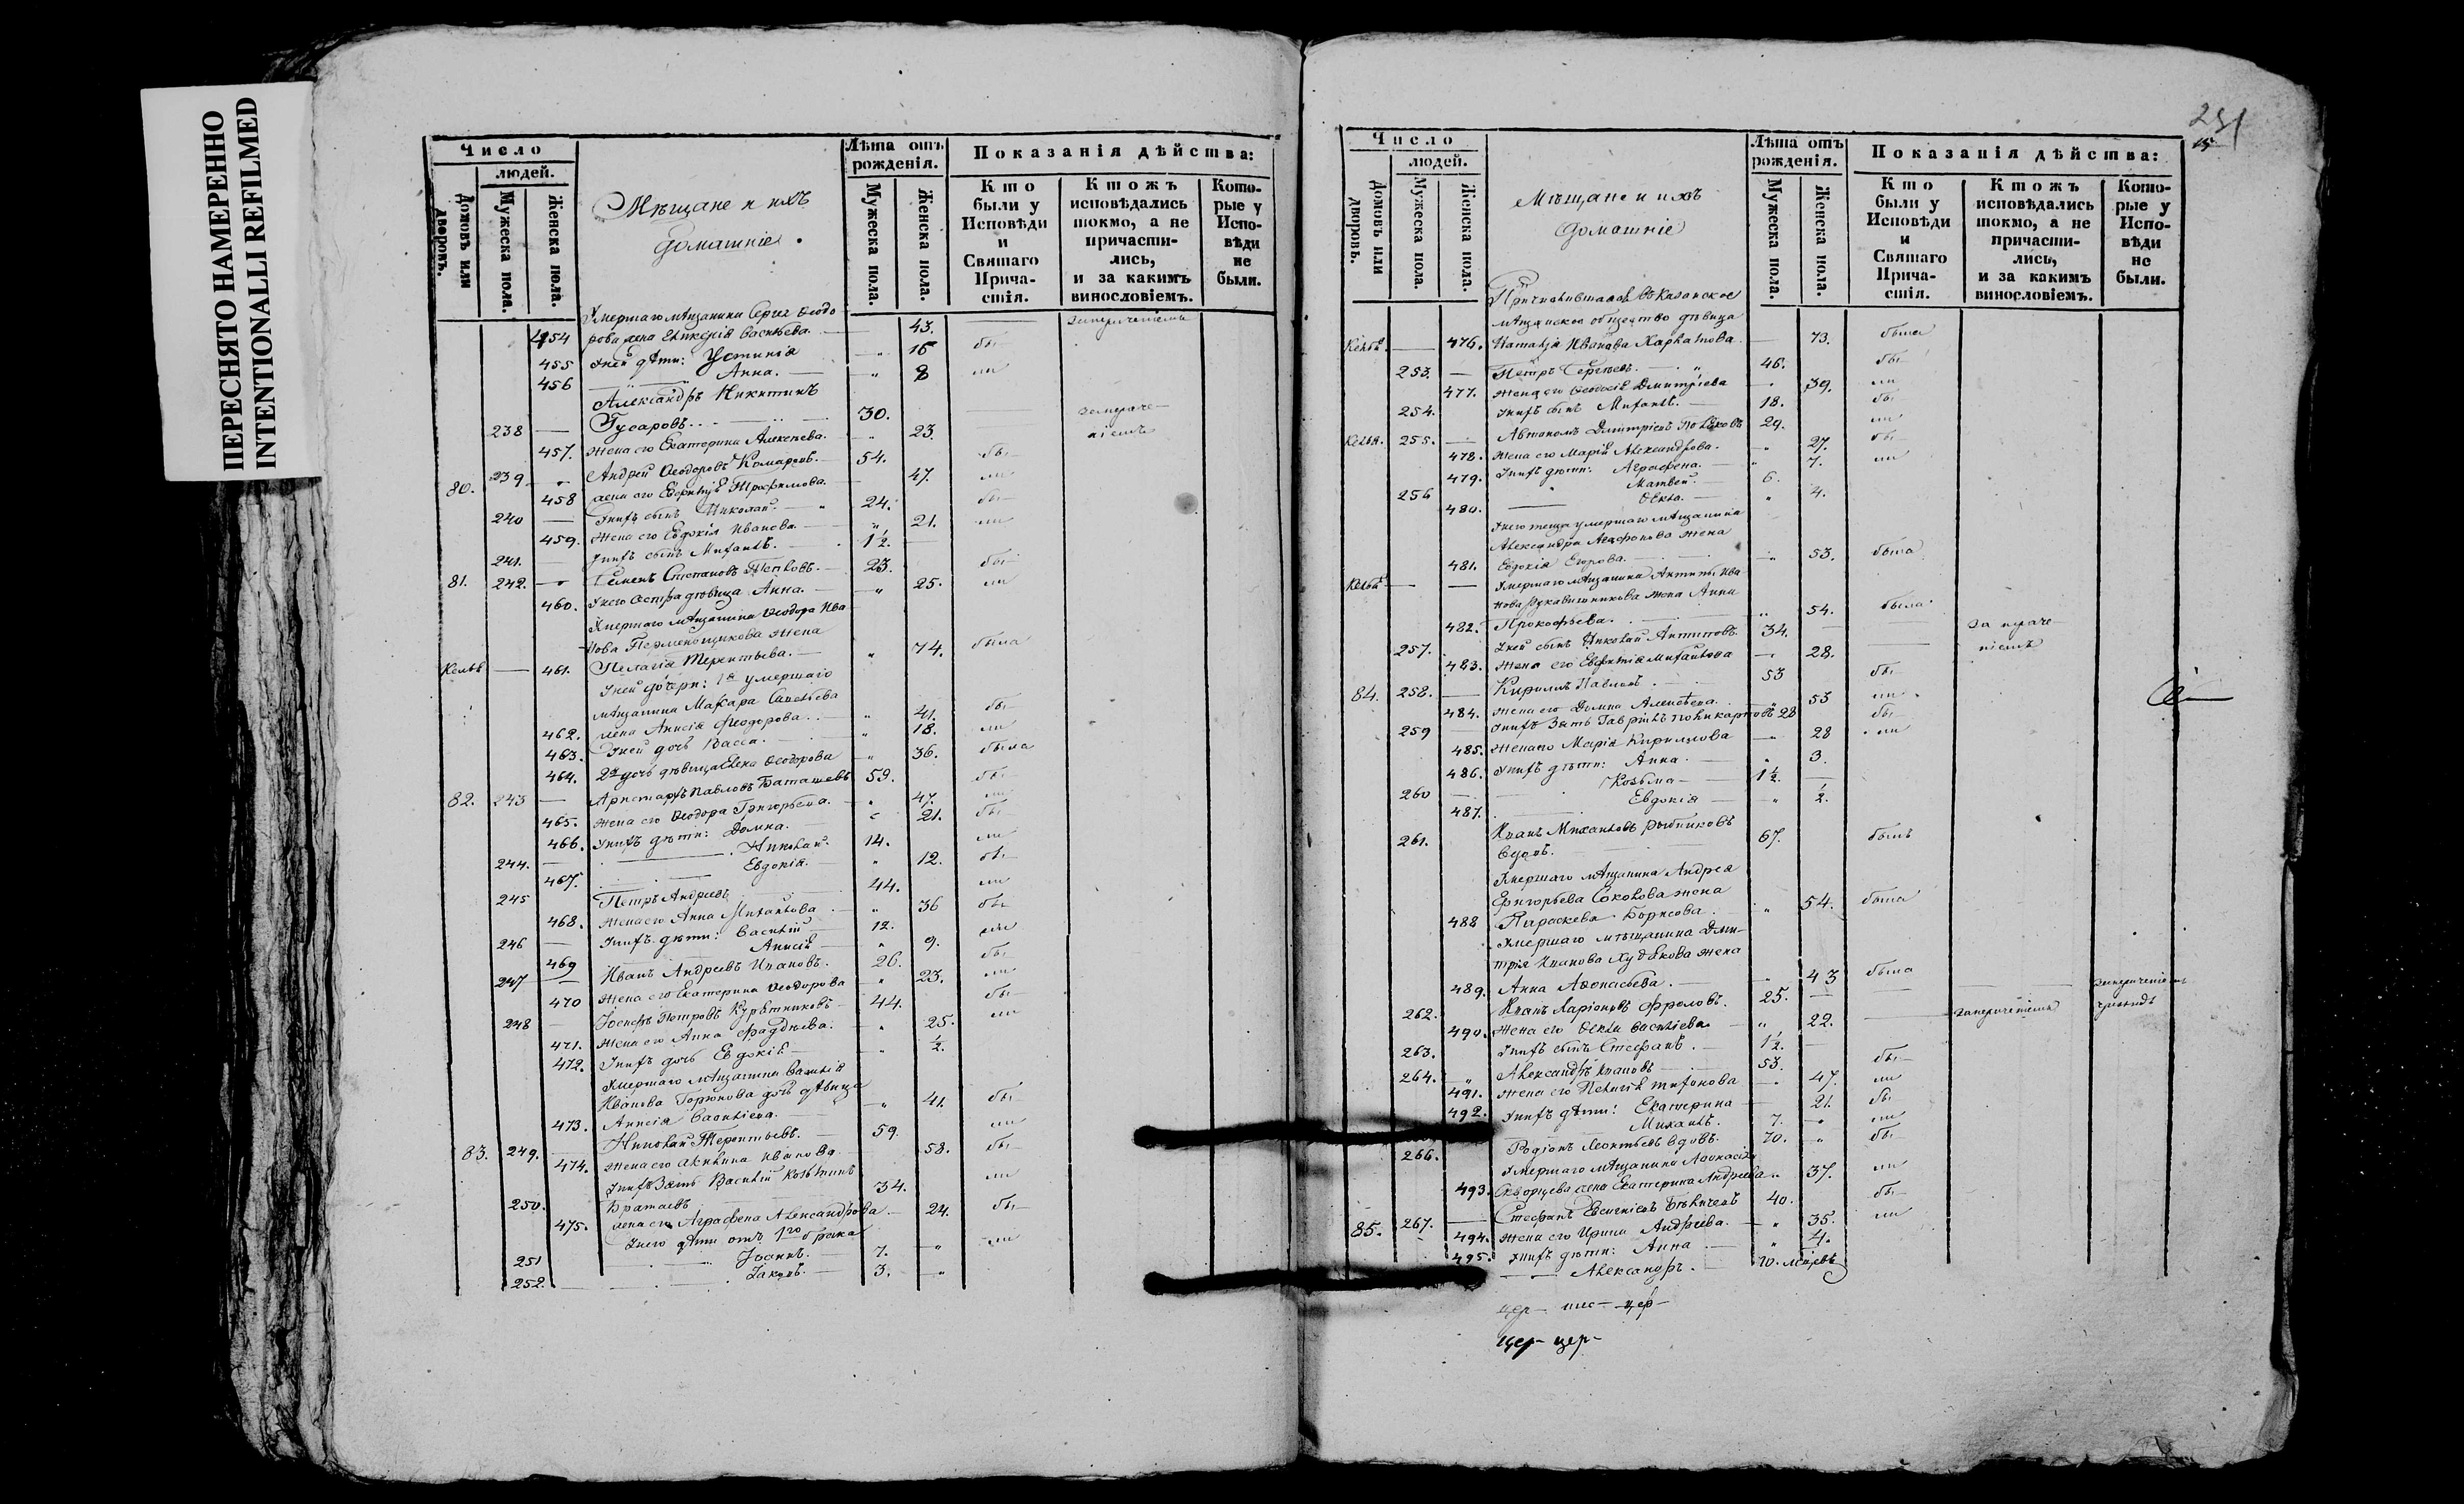 ПЕРЕСНЯТО НАМЕРЕННО
INTENTIONALLI REFILMED
Число
людей.
Домовъ или дворовъ.
Мужеска пола.
Женска пола.
Мѣщане и ихъ
домашніе.
Лѣта отъ рожденія.
Мужеска пола.
Женска пола.
Показанія дѣйства:
Кто были у Исповѣди и Святаго Причастія.
Ктожъ исповѣдались токмо, а не причастились, и за какимъ винословіемъ.
Которые у Исповѣди не были.
Умершаго мѣщанина Сергея Ѳеодо
454 рова жена Гликерія Васильева. 43.
455 У ней дѣти: Устинія 15 бы
456 Анна. 8 ли
Александръ Никитинъ
238 Гусаровъ 30.
457. жена его Екатерина Алексѣева. 23.
80. 239 Андрей Ѳеодоровъ Комаровъ. 54. бы
458 жена его Трофимова. 47. ли
240 У нихъ сынъ Николай. 24. бы
459. жена его Евдокія Иванова. 21. ли
241. У нихъ сынъ Михаилъ. 1½.
81. 242. Степановъ 23. бы
460. У него сестра дѣвица Анна. 25. ли
Умершаго мѣщанина Ѳеодора Ива
нова жена
Кельѣ 461. Пелагія Терентьева. 74. была
У ней дочери: 1я умершаго
мѣщанина Макара Савельева
462. жена Анисія Ѳеодорова. 41. бы
463. У ней дочь Васса. 18. ли
464. 2я дочь дѣвица Елена Ѳеодорова 36. была
82. 243 Аристархъ Павловъ Баташевъ 59. бы
465. жена его Ѳеодора Григорьева. 47. ли
466. У нихъ дѣти: Домна. 21. бы
244. Николай. 14. ли
467. Евдокія. 12. бы
245 Петръ Андреевъ 44. ли
468. жена его Анна Михайлова 36 бы
246 У нихъ дѣти: Василій 12. ли
469 Анисія 9. бы
247 Иванъ Андреевъ Ивановъ. 26. ли
470 жена его Екатерина Ѳеодорова 23. бы
248 Іосифъ Петровъ Курятниковъ 44. ли
471. жена его Анна Фаддѣева. 25.
472. У нихъ дочь Евдокія ½.
Умершаго мѣщанина Василія
Иванова Горюнова дочь дѣвица
473. Анисія Васильева. 41. бы
83. 249. Николай Терентьевъ. 59. ли
474. жена его Акилина Иванова 58. бы
У нихъ зять Василій Козьминъ
250. Братаевъ 34. ли
475. жена его Аграфена Александрова 24. бы
У него дѣти отъ 1го брака
251 Іоаннъ. 7. ли
252. Іаковъ. 3.
251
Число
людей.
Домовъ или дворовъ.
Мужеска пола.
Женска пола.
Мѣщане и ихъ
домашніе
Лѣта отъ рожденія.
Мужеска пола.
Женска пола.
Показанія дѣйства:
Кто были у Исповѣди и Святаго Причастія.
Ктожъ исповѣдались токмо, а не причастились, и за какимъ винословіемъ.
Которые у Исповѣди не были.
въ Казанское
мѣщанское общество дѣвица
476. Наталія Иванова 73. была
253. Петръ Сергѣевъ. 46. бы
477. жена его Ѳеодосія Дмитріева 39. ли
254. У нихъ сынъ Михаилъ. 18. бы
255. Автономъ Дмитріевъ 29. ли
478. жена его Марія Александрова. 27. бы
479. У нихъ дѣти: Аграфена. 7. ли
256 Матвей. 6.
480. Ѳекла. 4.
У него теща умершаго мѣщанина
Александра Агафонова жена
481. Евдокія Егорова. 53. была
Умершаго мѣщанина Антипы Ива
нова Рукавишникова жена Анна
482. Прокофьева. 54. была
257. У ней сынъ Николай Антиповъ 34.
483. жена его Михайлова 28.
84. 258. Кириллъ Павловъ. 53 бы
484. жена его Домна Алексѣева. 53 ли
259 У нихъ зять Гавріилъ Поликарповъ 28 бы
485. жена его Марія Кириллова 28 ли
486. У нихъ дѣти: Анна. 3.
260 Козьма 1½.
487. Евдокія ½.
Иванъ Михайловъ
261. вдовъ. 67. былъ
Умершаго мѣщанина Андрея
Григорьева Соколова жена
488 Параскева Борисова. 54. была
Умершаго мѣщанина Дми
трія Иванова Худякова жена
489. Анна Аѳонасьева. 43 была
262. Иванъ Ларіоновъ Фроловъ. 25.
490. жена его Ѳекла Васильева. 22.
263. У нихъ сынъ Стефанъ. 1½.
264. Александръ Ивановъ 53. бы
491. жена его Пелагія Тихонова 47. ли
492. У нихъ дѣти: Екатерина 21. бы
Михаилъ. 7. ли
266. Родіонъ Леонтьевъ вдовъ. 70. бы
Умершаго мѣщанина Аѳонасія
493. Скворцева жена Екатерина Андреева. 37. ли
85. 267. Стефанъ 40. бы
494. жена его Ирина Андреева. 35. ли
495. У нихъ дѣти: Анна 4.
Александръ. 10. мѣсяцевъ